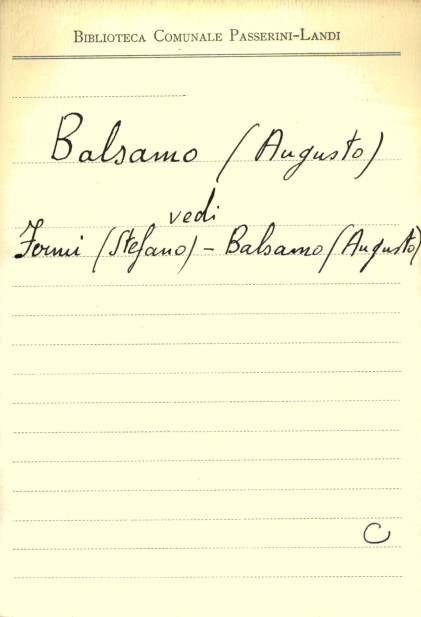 BIBLIOTECA COMUNALE PASSERINI-LANDI
Balsamo (Augusto)
vedi
Fermi (Stefano) - Balsamo (Augusto)
C